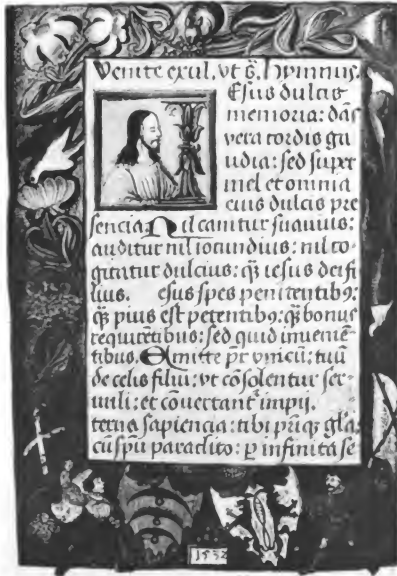 Venite exul. vt s̄. hymnus.
Esus dulcis
memoria: dās
vera cordis ga
udia: sed super
mel et omnia
eius dulcis pre
sencia. Nil canitur suauius:
auditur nil iocundius: nil co-
gitatur dulcius: q̄ iesus dei fi
lius. esus spes penitentibꝰ:
q̄ pius est petentibꝰ: q̄ bonus
requirentibus: sed quid inuenie̅-
tibus. Emitte pr̄ vnicū: tuū
de celis filiū: vt cōsolentur ser-
uili: et cōuertant᷑ impij.
terna sapiencia: tibi pr̄iqꝫ glā
cū spū paraclito: ꝑ infinita se
1532